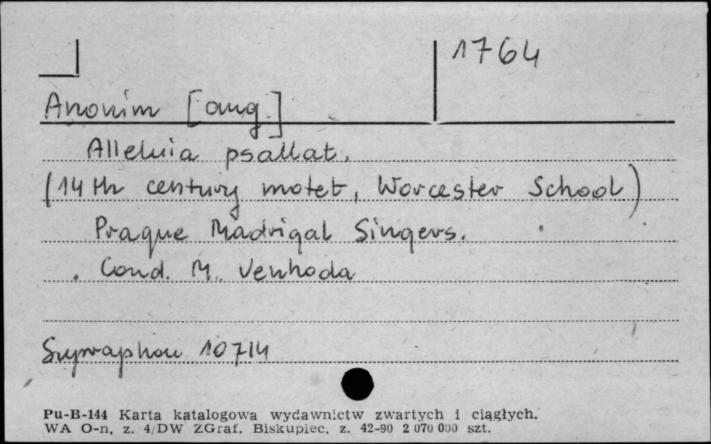 1764
Anonim [ang.]
Alleluia psallat.
(14th century motet, Worcester School)
Prague Madrigal Singers.
Cond. M. Venhoda
Supraphon 10714
Pu-B-144 Karta katalogowa wydawnictw zwartych i ciągłych.
WA O-n, z. 4/DW ZGraf. Biskupiec, z. 42-90 2 070 000 szt.